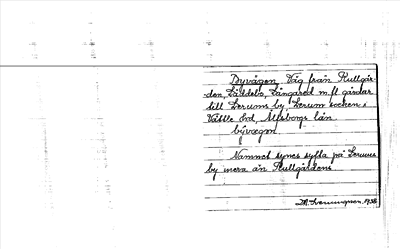 Byvägen, Väg från Kullgår-
den, Lilldebo, Långared m.fl gårdar
till Lerums by, Lerum socken i
Vättle hd, Älvsborgs län.
byvægen
Namnet synes syfta på Lerums
by mera än Kullgårdens
1938